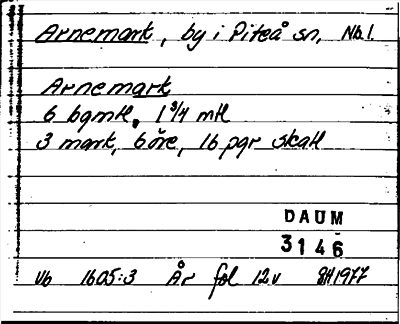 Arnemark, by i Piteå sn, Nb l.
Arnemark
6 bgmtl, 1 3/4 mtl
3 mark, 6 öre, 16 pgr skatt
DAUM
3146
Vb 1605:3 År fol 12v BH 1977